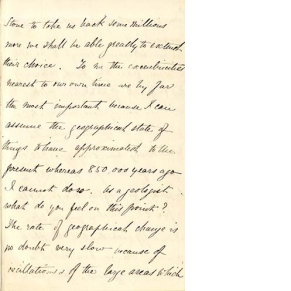 Stone to take us back some millions
more we shall be able greatly to extend
their choice. To me the excentricities
nearest to our own time are by far
the most important because I can
assume the geographical state of
things to have approximated to the
present whereas 850,000 years ago
I cannot do so. As a geologist
what do you feel on this point?
The rate of geographical change is
no doubt very slow because of
oscillations of the large areas which